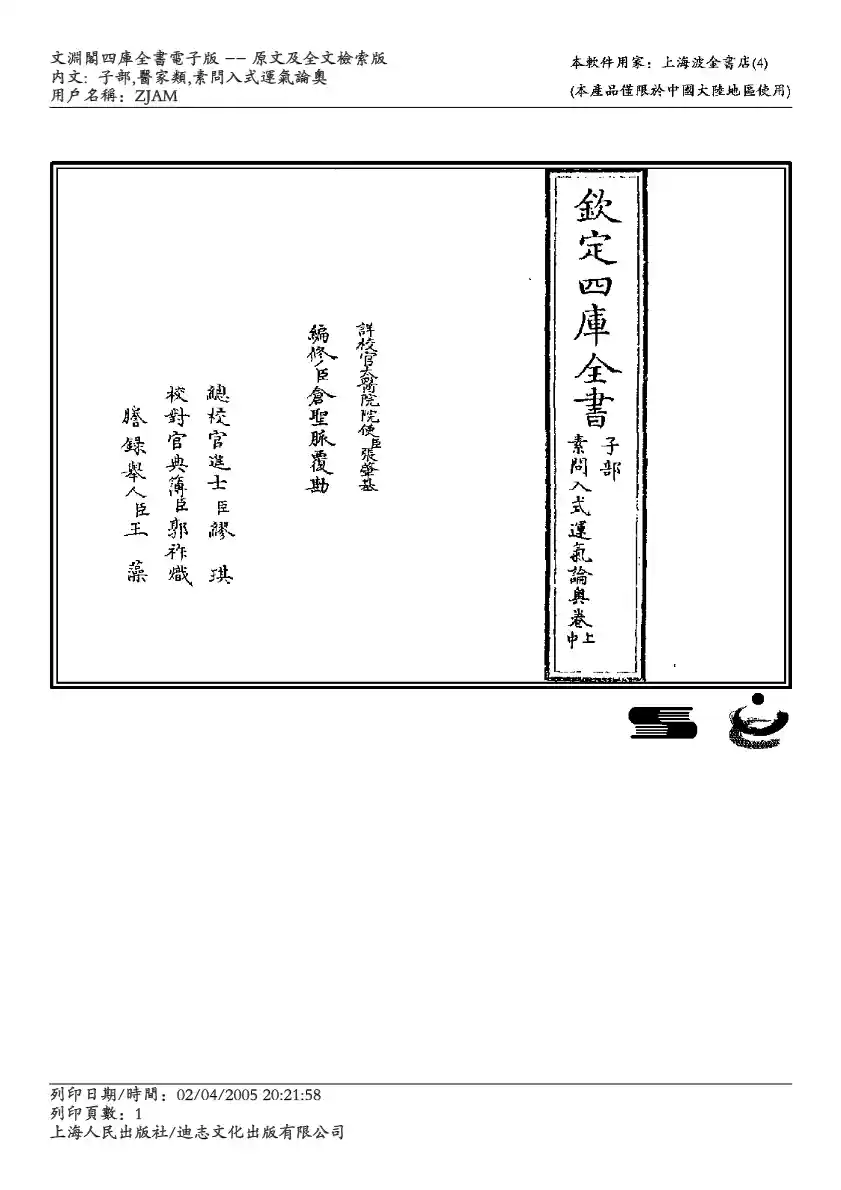 文淵閣四庫全書電子版 -- 原文及全文檢索版
內文: 子部,醫家類,素問入式運氣論奧
用戶名稱: ZJAM
本軟件用家: 上海波金書店(4)
(本產品僅限於中國大陸地區使用)
欽定四庫全書
子部
素問入式運氣論奧卷上中
詳校官太醫院院使臣張肇基
編修臣倉聖脈覆勘
總校官進士臣繆琪
校對官典簿臣郭祚熾
謄錄舉人臣王藻
列印日期/時間: 02/04/2005 20:21:58
列印頁數: 1
上海人民出版社/迪志文化出版有限公司